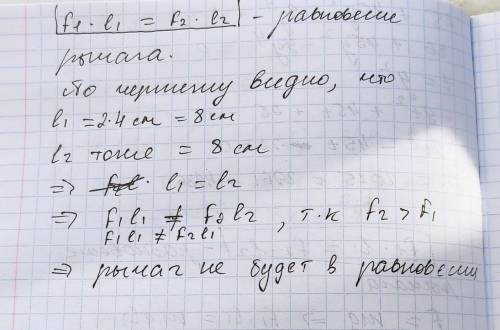 f1 · l1 = f2 · l2 - равновесие
рычага.
По чертежу видно, что
l1 = 2·4 см = 8 см
l2 тоже = 8 см
⇒ l1 = l2
⇒ f1l1 ≠ f2l2, т.к f2 > f1
f1l1 ≠ f2l1
⇒ рычаг не будет в равновесии